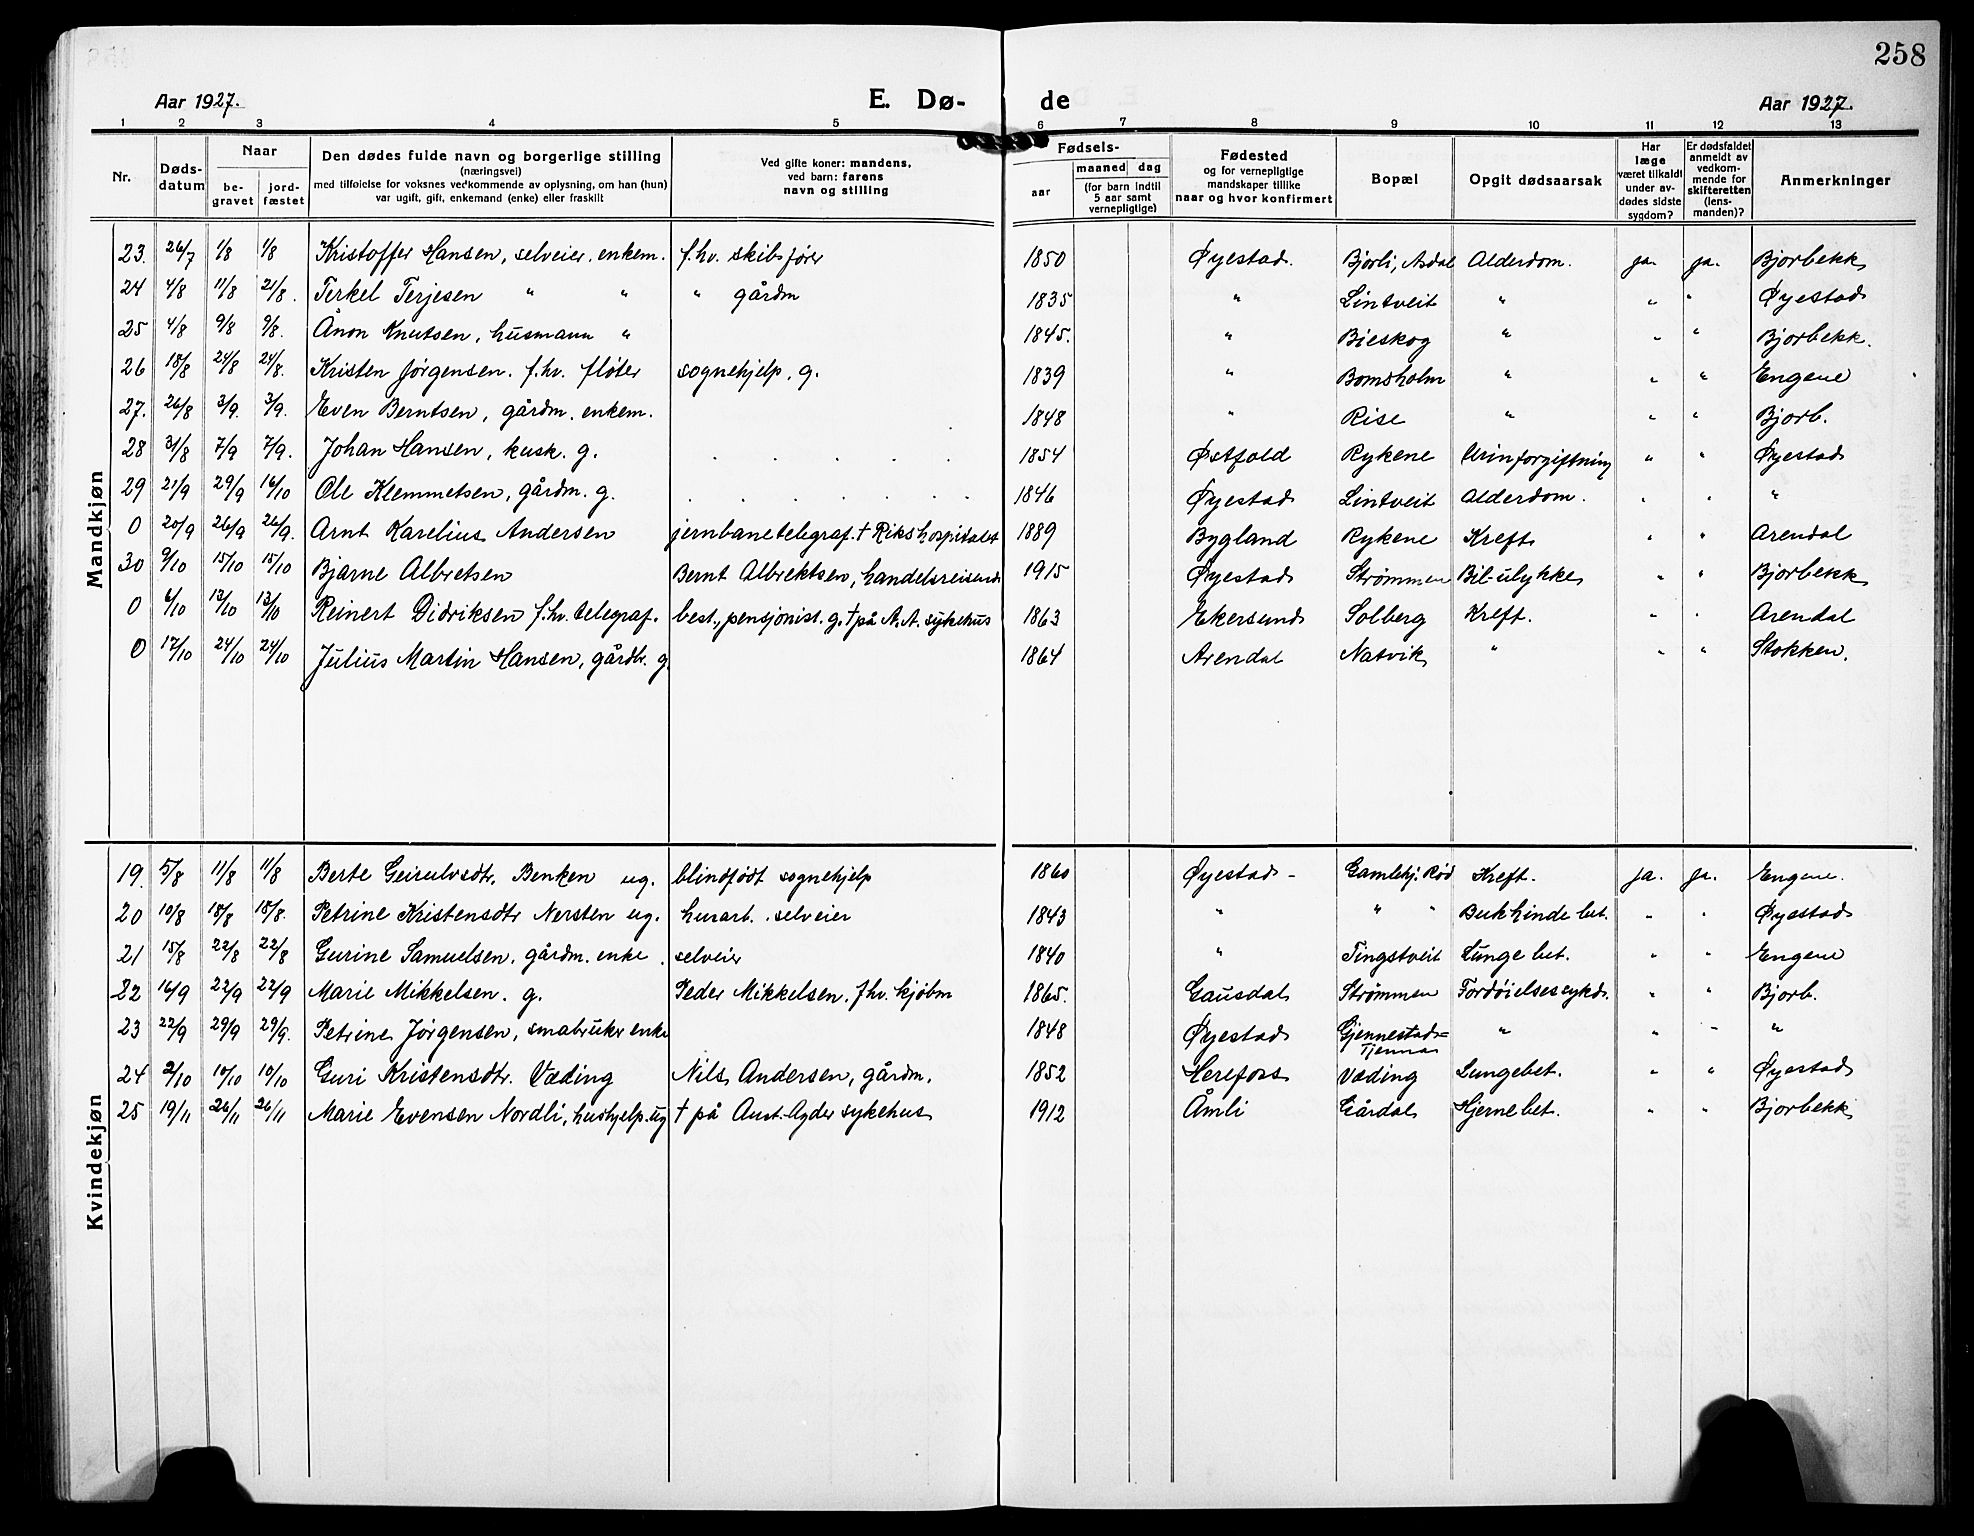 258
Aar 1927. E. Dø- de Aar 1927.
1 2 3 4 5 6 7 8 9 10 11 12 13
Nr. Døds-datum Naar be-gravet jord-fæstet Den dødes fulde navn og borgerlige stilling (næringsvei) med tilføielse for voksnes vedkommende av oplysning, om han (hun) var ugift, gift, enkemand (enke) eller fraskilt Ved gifte koner: mandens, ved barn: farens navn og stilling Fødsels- aar maaned dag (for barn indtil 5 aar samt vernepligtige) Fødested og for vernepligtige mandskaper tillike naar og hvor konfirmert Bopæl Opgit dødsaarsak Har læge været tilkaldt under av-dødes sidste sygdom? Er dødsfaldet anmeldt av vedkom-mende for skifteretten (lens-manden)? Anmerkninger
Mandkjøn
23. 26/7 1/8 1/8 Kristoffer Hansen, selveier. enkem. f.hv. skibsfører 1850 Øyestad. Bjorli, Asdal Alderdom. ja. ja. Bjorbekk
24 4/8 11/8 21/8. Terkel Terjesen " " " gårdm 1835 " Lintveit " " " Øyestad
25 4/8 9/8 9/8. Ånon Knutsen, husmann " 1845. " Bieskog " " " Bjorbekk.
26 18/8 24/8 24/8. Kristen Jørgensen. f.hv. fløter sognehjelp. g. 1839 " Bomsholm " " " Engene
27. 26/8 3/9. 3/9. Even Berntsen, gårdm. enkem. 1848 " Rise " " " Bjorb.
28 31/8 7/9 7/9. Johan Hansen, kusk. g. . . . . . 1854 Østfold Rykene Urinforgiftning " " Øyestad
29 21/9 29/9 16/10 Ole Klemmetsen, gårdm. g. . . . . . . . 1846 Øyestad Lintveit Alderdom. " " "
0 20/9 26/9 26/9. Arnt Karelius Andersen jernbanetelegraf. † Rikshospitalet 1889 Bygland Rykene Kreft " " Arendal
30 9/10 15/10 15/10 Bjarne Albretsen Bernt Albrektsen, handelsreisende 1915 Øyestad Strømmen Bil-ulykke " " Bjorbekk
0 6/10 13/10 13/10 Reinert Didriksen f.hv. telegraf. best., pensjonist. g. † på A.A. sykehus 1863 Ekersund Solberg Kreft. " " Arendal
0 17/10 24/10 24/10 Julius Martin Hansen, gårdbr. g. 1864 Arendal Natvik " " " Stokken.
Kvindekjøn
19. 5/8 11/8 11/8 Berte Geirulvsdtr. Benken ug. blindfødt sognehjelp 1860 Øyestad - Gamlehj. Rød Kreft. ja. ja. Engene.
20 10/8 18/8 18/8. Petrine Kristensdtr Nersten ug. husarb. selveier 1843 " " " Bukhinde bet. " " Øyestad
21 15/8 22/8 22/8 Gurine Samuelsen, gårdm. enke. selveier 1840 " Tingstveit Lunge bet. " " Engene
22 16/9 22/9 22/9 Marie Mikkelsen. g. Peder Mikkelsen. f.hv. kjøbm 1865. Gausdal Strømmen Fordøielsessykd. " " Bjorb.
23 22/9 29/9 29/9. Petrine Jørgensen, småbruker enke 1848 Øyestad Gjennestad-Tjenna " " - "
24 2/10 10/10 10/10 Guri Kristensdtr. Væding Nils Andersen, gårdm. 1852 Herefoss Væding Lungebet. " " Øyestad
25 19/11 26/11 26/11 Marie Evensen Nordli, hushjelp. ug † på Aust-Agder sykehus 1912 Åmli Gårdal Hjerne bet. " " Bjorbekk